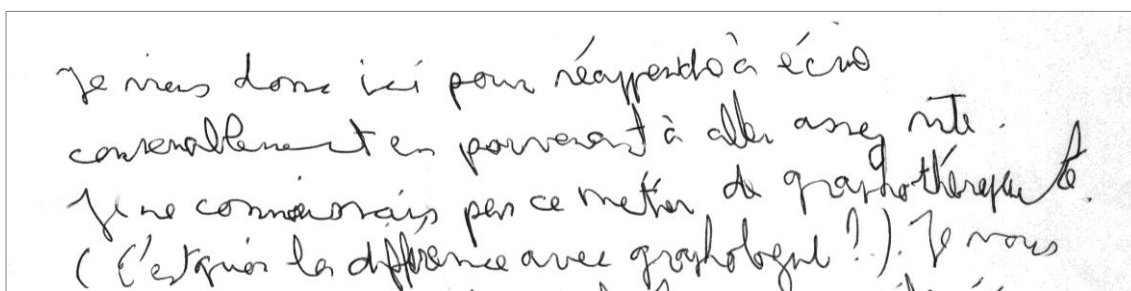 Je viens donc ici pour réapprendre à écrire
convenablement en parvenant à aller assez vite.
Je ne connaissais pas ce métier de graphothérapeute.
(C'est quoi la différence avec graphologue ?). Je vous